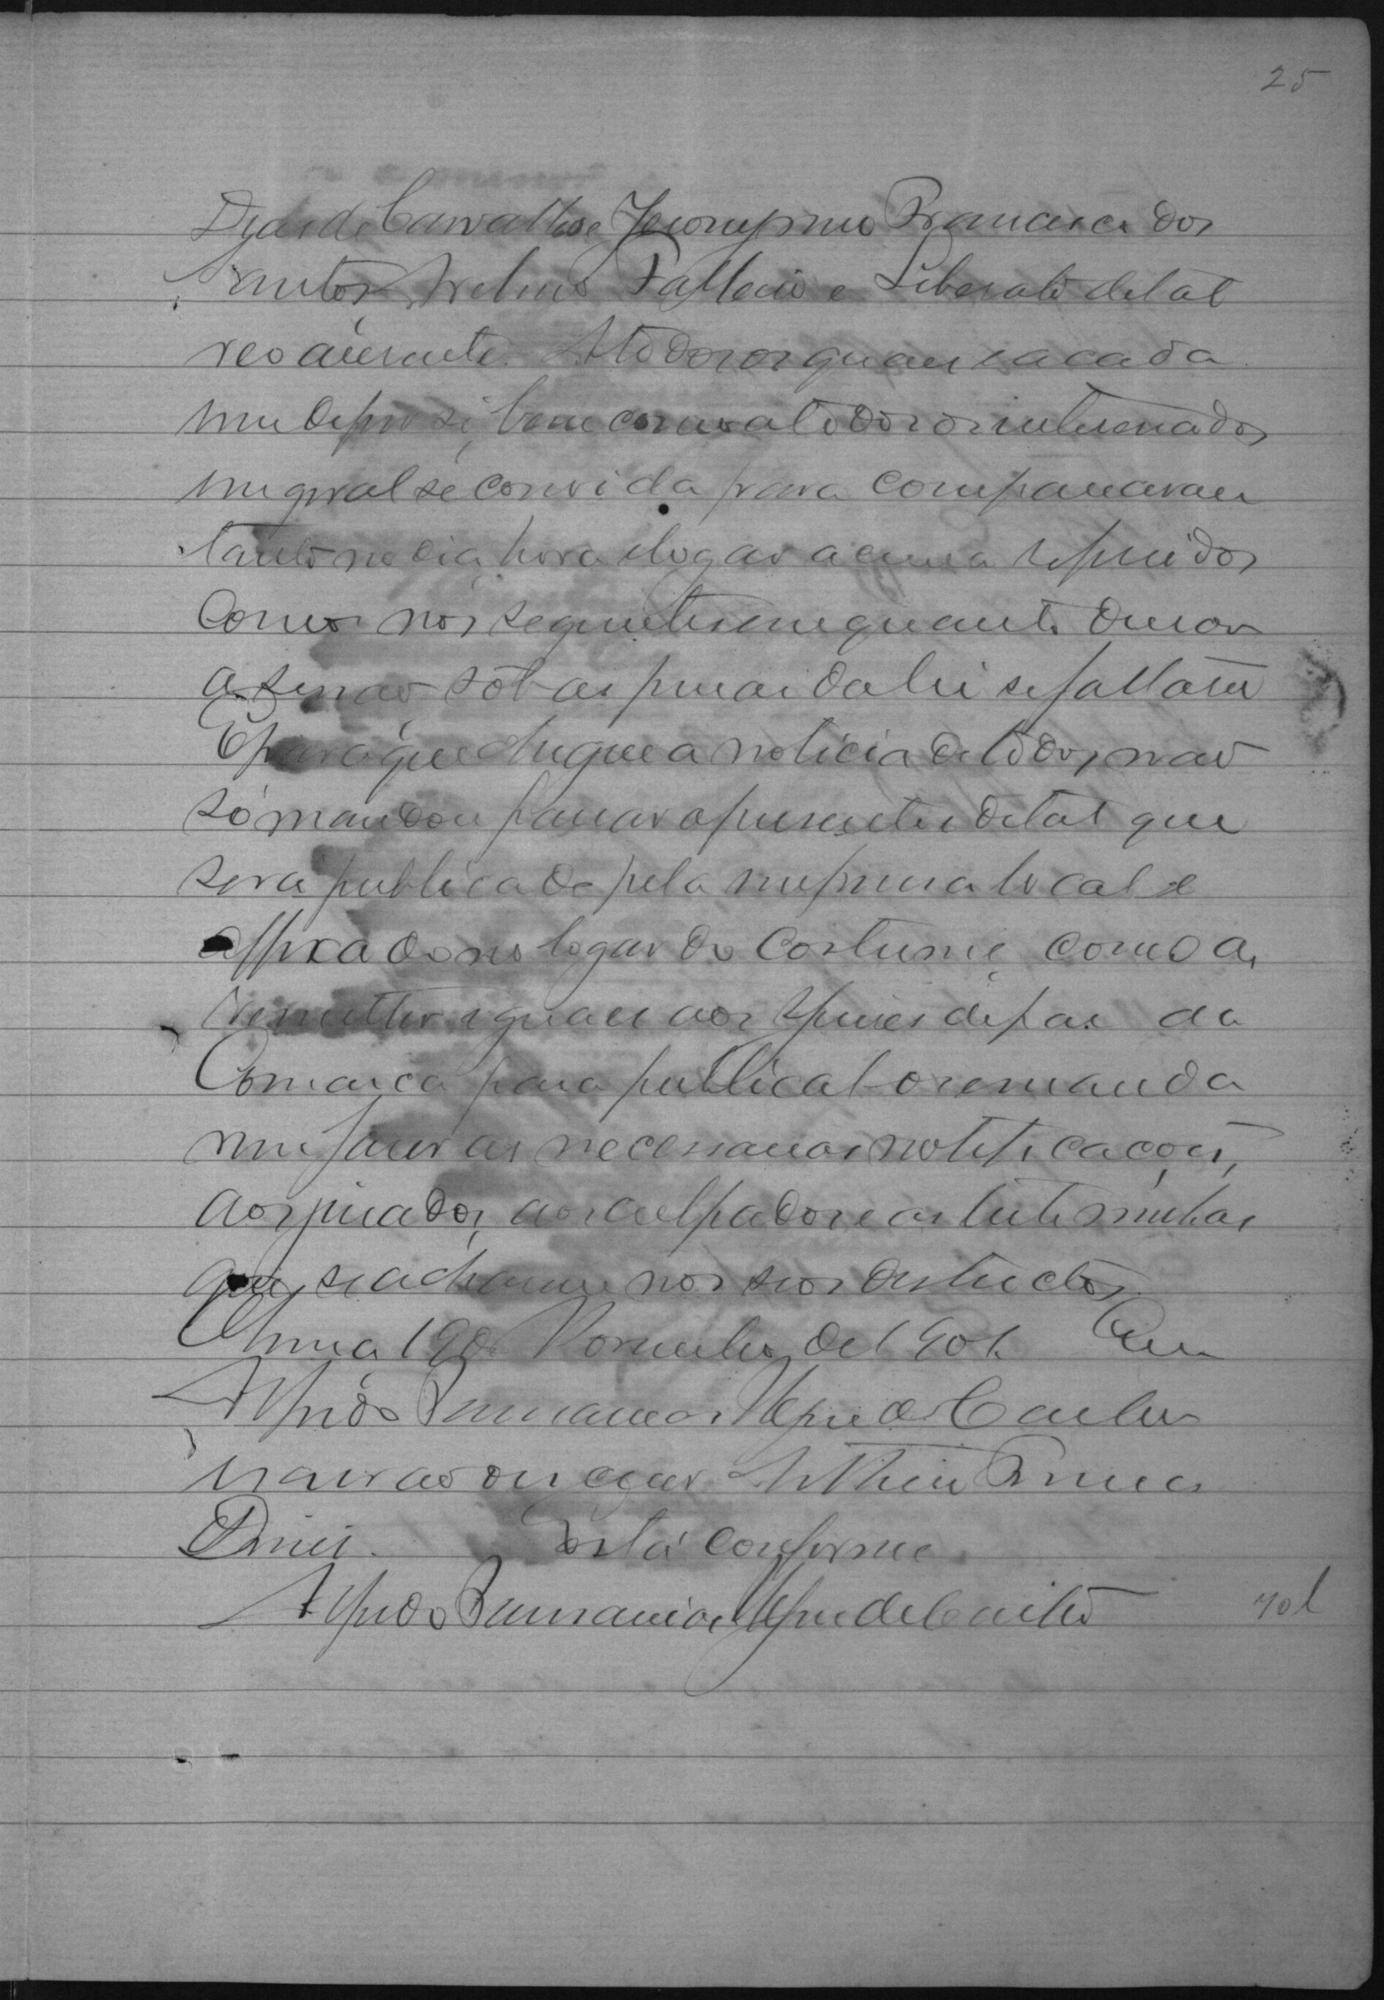 25
de Carvalho e Jeronymo Francisco dos
Santos, Avelino Palheio e Liberato de tal
reo ausente. A todos os quaes e a cada
um de per si, bem como a todos os interessados
em geral se convida para compareceram
tanto no dia, hora e logar acima referidos
como nos seguintes em quanto durar
a sessão sob as penas da lei se faltarem
E para que chegue a noticia de todos, não
só mandou passar o presente edital que
será publicado pela imprensa local e
affixado no logar do costume, como a
remetter iguaes aos Juizes de paz da
Comarca para publical-os e manda
em fazer as necessarias notificações,
aos jurados, aos culpados e as testemunhas
que se acharem nos seos districtos
19 de Novembro de 1901. Eu
Alfredo Jes de Castro
escrivão que escrevi Arthur
Diniz. Está conforme
Alfredo de Castro